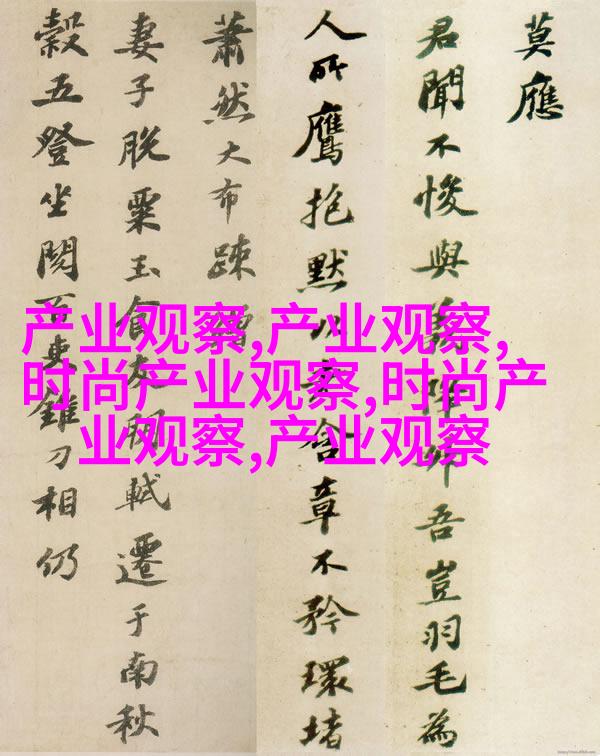 莫應
君聞不悛與降吾豈羽毛為
人所鷹抱默以含章不矜環堵
蕭然大布疎繒
妻子脫粟玉食友朋軾遷于南秋
穀五登坐閱百錐刀相仍
产业观察,产业观察,
时尚产业观察,时尚产
业观察,产业观察